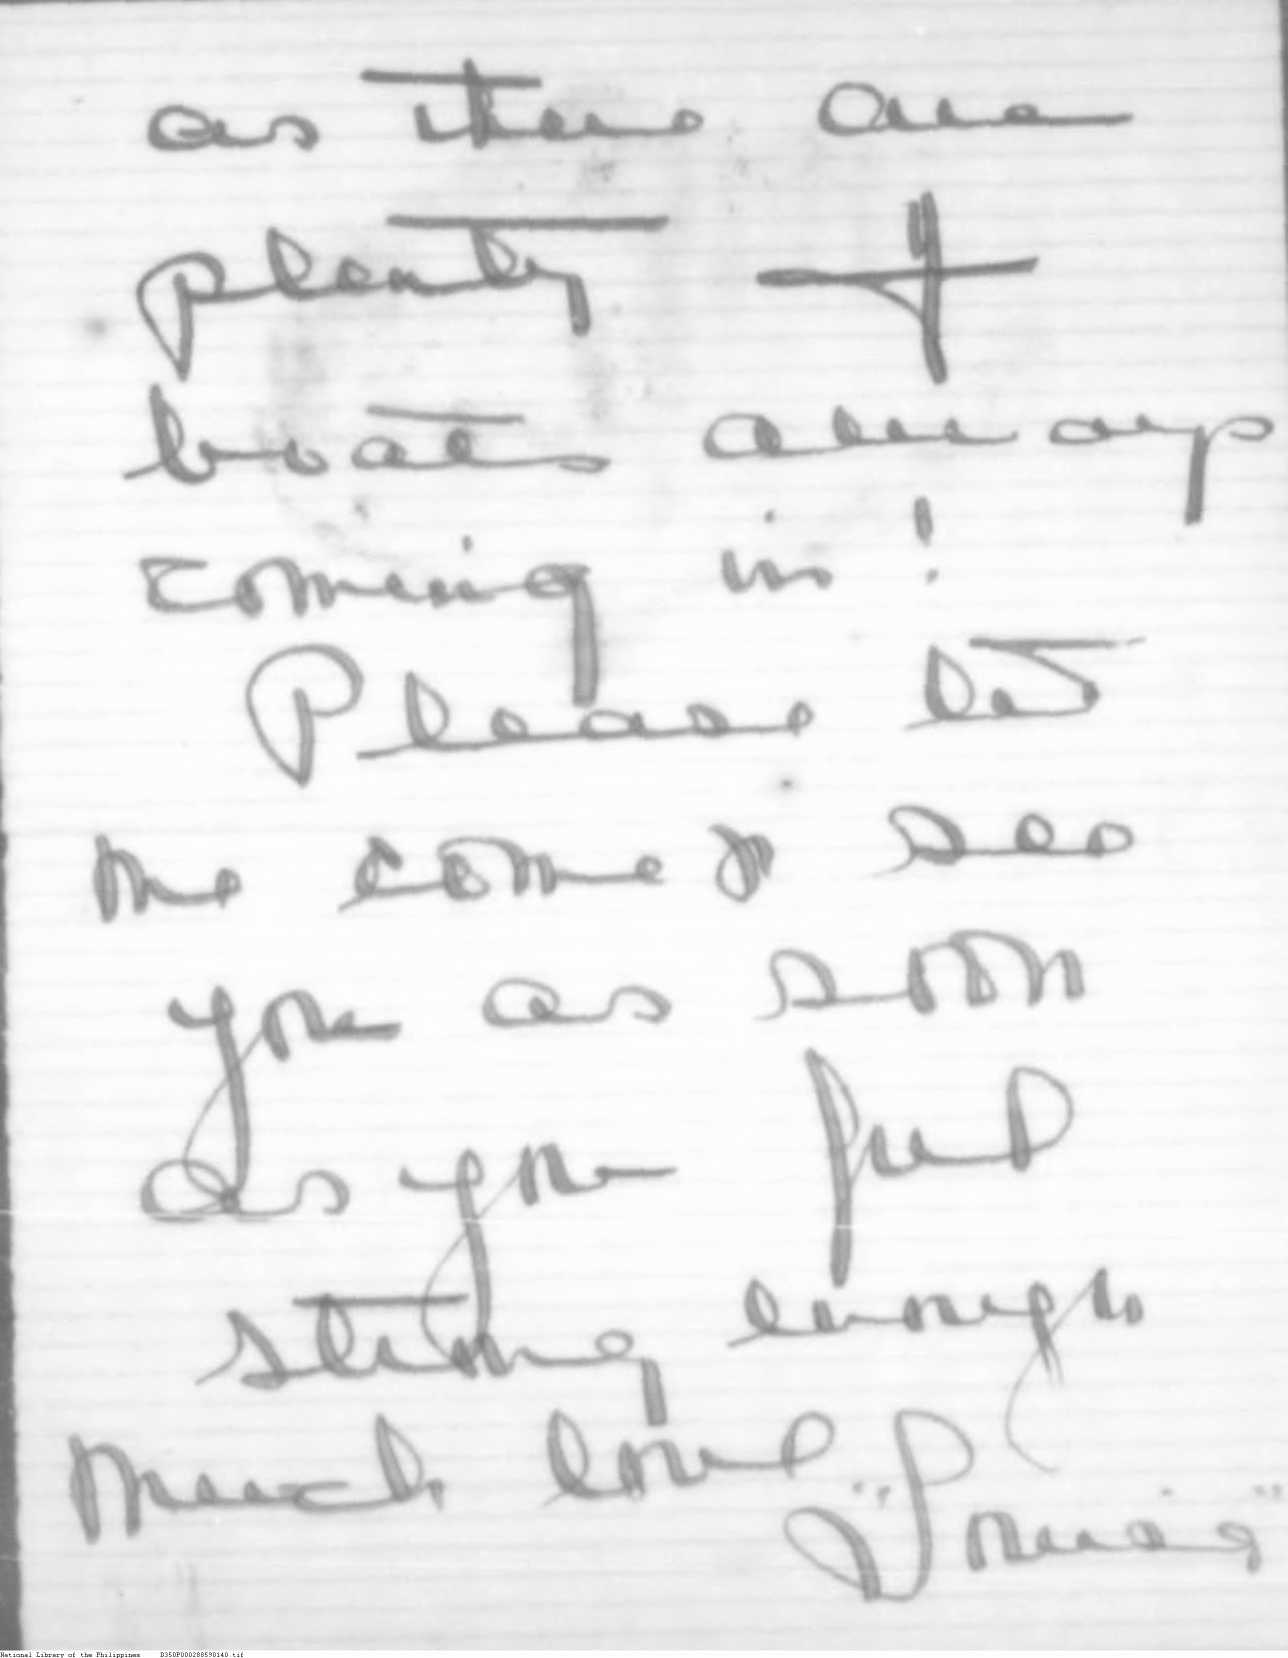 as there are
plenty of
boats always
coming in!
Please let
me come & see
you as soon
as you feel
strong enough
Much love
National Library of the Philippines D350P000288590140.tif